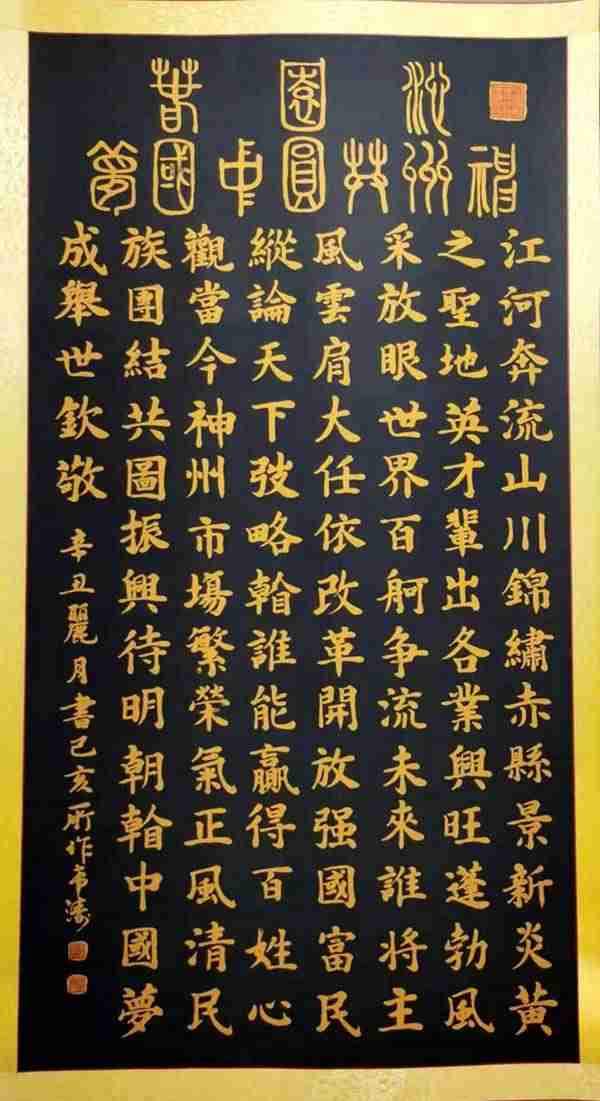 沁園春
神州共圓中國夢
江河奔流山川錦繡赤縣景新炎黃
之聖地英才輩出各業興旺蓬勃風
采放眼世界百舸争流未來誰將主
風雲肩大任依改革開放强國富民
縱論天下弢略誰能贏得百姓心
觀當今神州市場繁榮氣正風清民
族團結共圖振興待明朝中國夢
成舉世欽敬
辛丑麗月書己亥所作